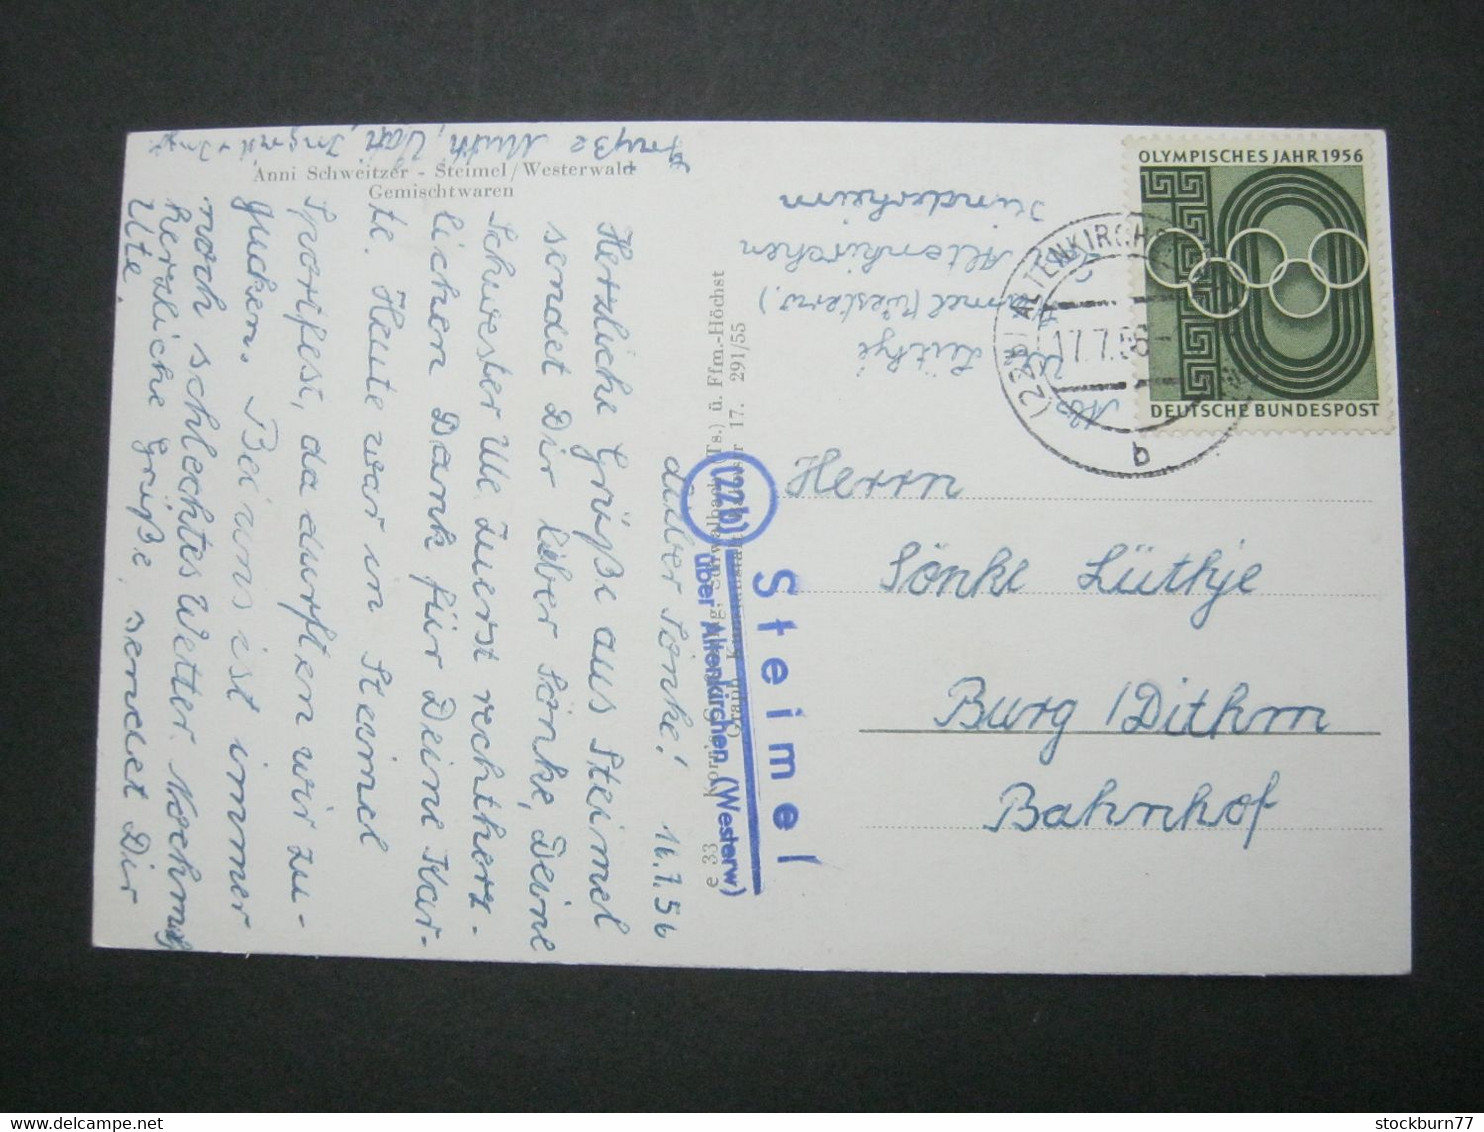 Anni Schweitzer - Steimel/Westerwald
Gemischtwaren
Lieber Sönke! 16.7.56
Herzliche Grüße aus Steimel
sendet Dir lieber Sönke, Deine
Schwester Ute. Zuerst recht herz-
lichen Dank für Deine Kar-
te. Heute war in Steimel
Sportfest, da durften wir zu-
gucken. Bei uns ist immer
noch schlechtes Wetter. Nochmals
herzliche Grüße, sendet Dir
Ute.
Grüße
e 33
ü. Ffm.-Höchst
17. 291/55
(22b)
Steimel
über Altenkirchen (Westerw)
Abs.
Lüthje
(Westerw.)
Altenkirchen
Kinderheim
OLYMPISCHES JAHR 1956
DEUTSCHE BUNDESPOST
(22b) ALTENKIRCHEN
17.7.56
b
Herrn
Sönke Lüthje
Burg/Dithm
Bahnhof
stockburn77